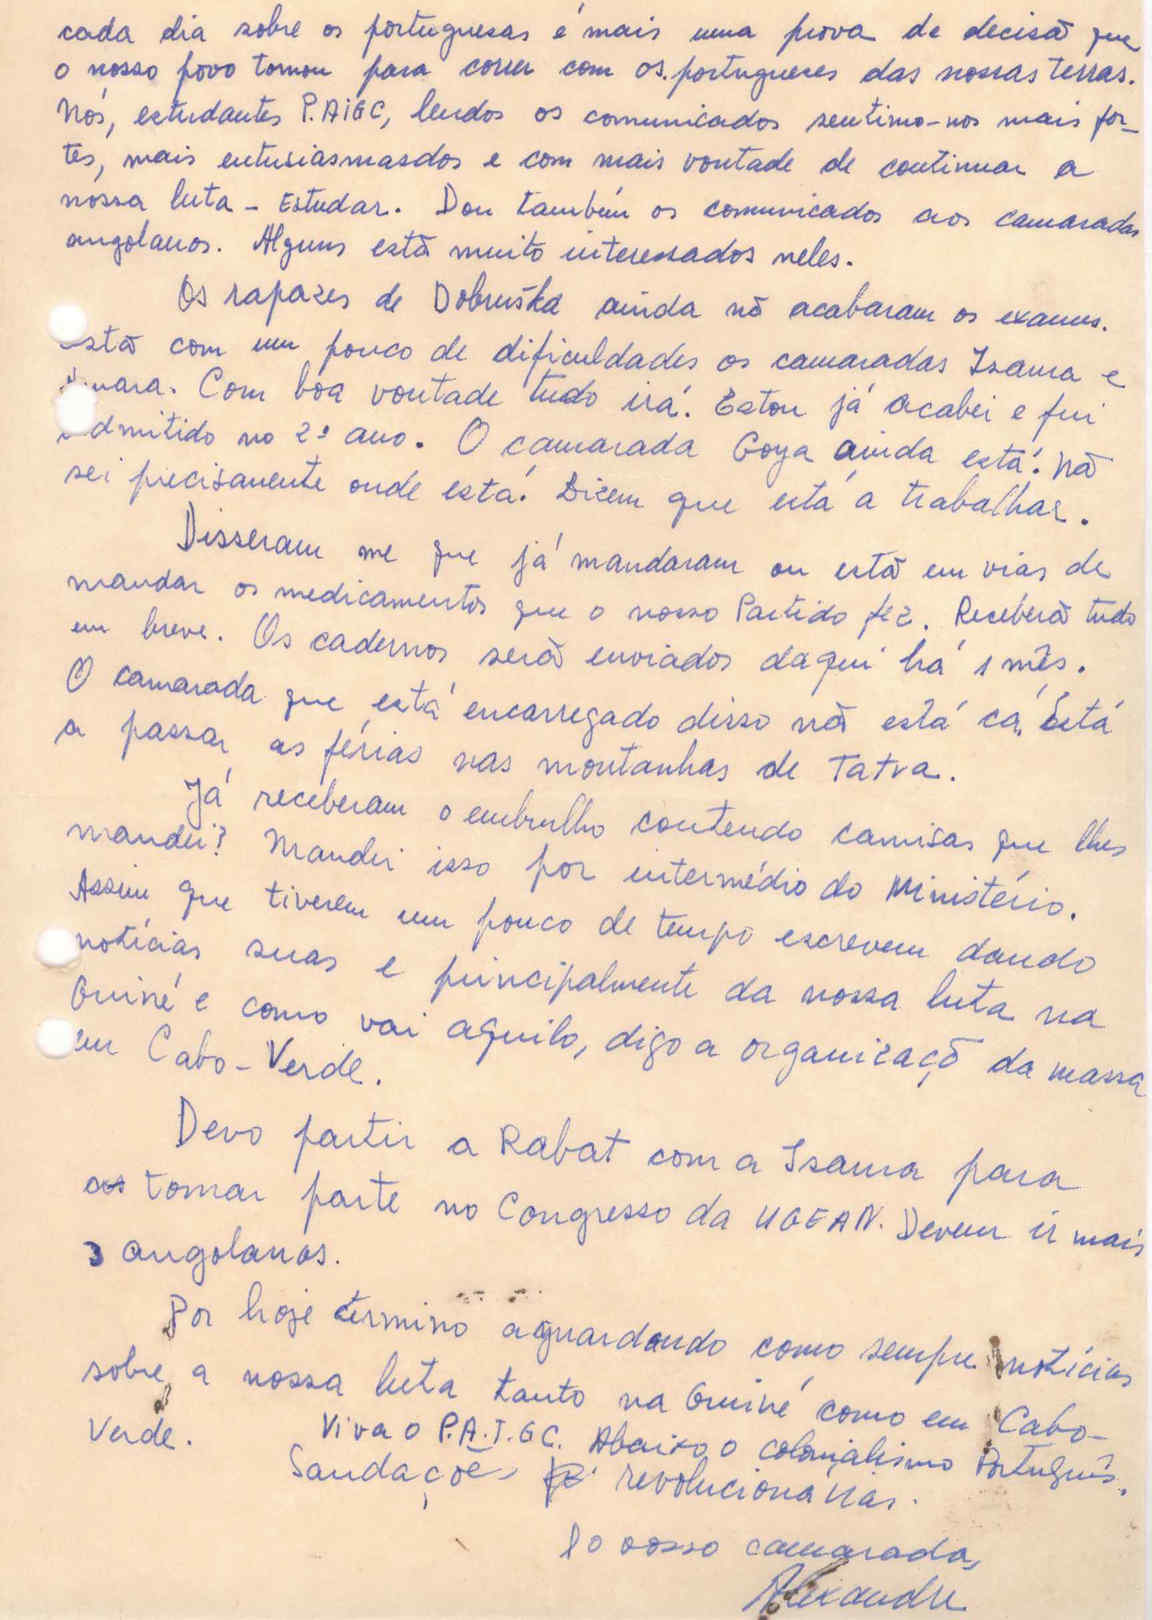 cada dia sobre os portuguesas é mais uma prova de decisã que
o nosso povo tomou para correr com os portugueses das nossas terras.
Nós, estudantes P.AIGC, lendos os comunicados sentimo-nos mais for-
tes, mais entusiasmasdos e com mais vontade de continuar a
nossa luta - Estudar. Dou também os comunicados aos camaradas
angolanos. Alguns estã muito interessados neles.
Os rapazes de Dobruška ainda nõ acabaram os exames.
estã com um pouco de dificuldades os camaradas Isaura e
mara. Com boa vontade tudo irá. Estou já acabei e fui
admitido no 2º ano. O camarada Goya ainda está. Nã
sei precisamente onde está. Dizem que está a trabalhar.
Disseram me que já mandaram ou estã em vias de
mandar os medicamentos que o nosso Partido fez. Receberã tudo
em breve. Os cadernos serã enviados daqui há 1 mês.
O camarada que está encarregado disso nã está cá. Está
a passar as férias nas montanhas de Tatra.
Já receberam o embrulho contendo camisas que lhes
mandei? Mandei isso por intermédio do Ministério.
Assim que tiverem um pouco de tempo escrevem dando
notícias suas e principalmente da nossa luta na
Guiné e como vai aquilo, digo a organizaçõ da massa
em Cabo-Verde.
Devo partir a Rabat com a Isaura para
tomar parte no Congresso da UGEAN. Devem ir mais
3 angolanos.
Por hoje termino aguardando como sempre notícias
sobre a nossa luta tanto na Guiné como em Cabo-
Verde. Viva o P.A.I.GC. Abaixo o colonialismo Português.
Saudações revolucionárias.
do vosso camarada,
Alexandre